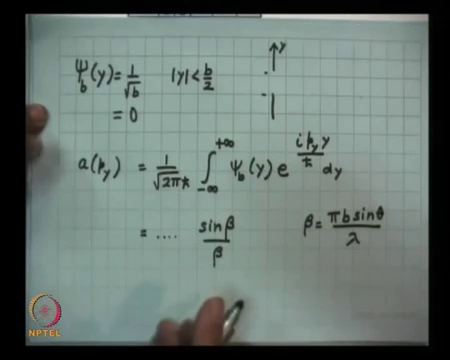 ψ_b(y) = 1/√b |y| < b/2
= 0
y
a(p_y) = 1/√(2πħ) ∫_{-∞}^{+∞} ψ_b(y) e^{i p_y y/ħ} dy
= .... sinβ/β β = πb sinθ/λ
NPTEL